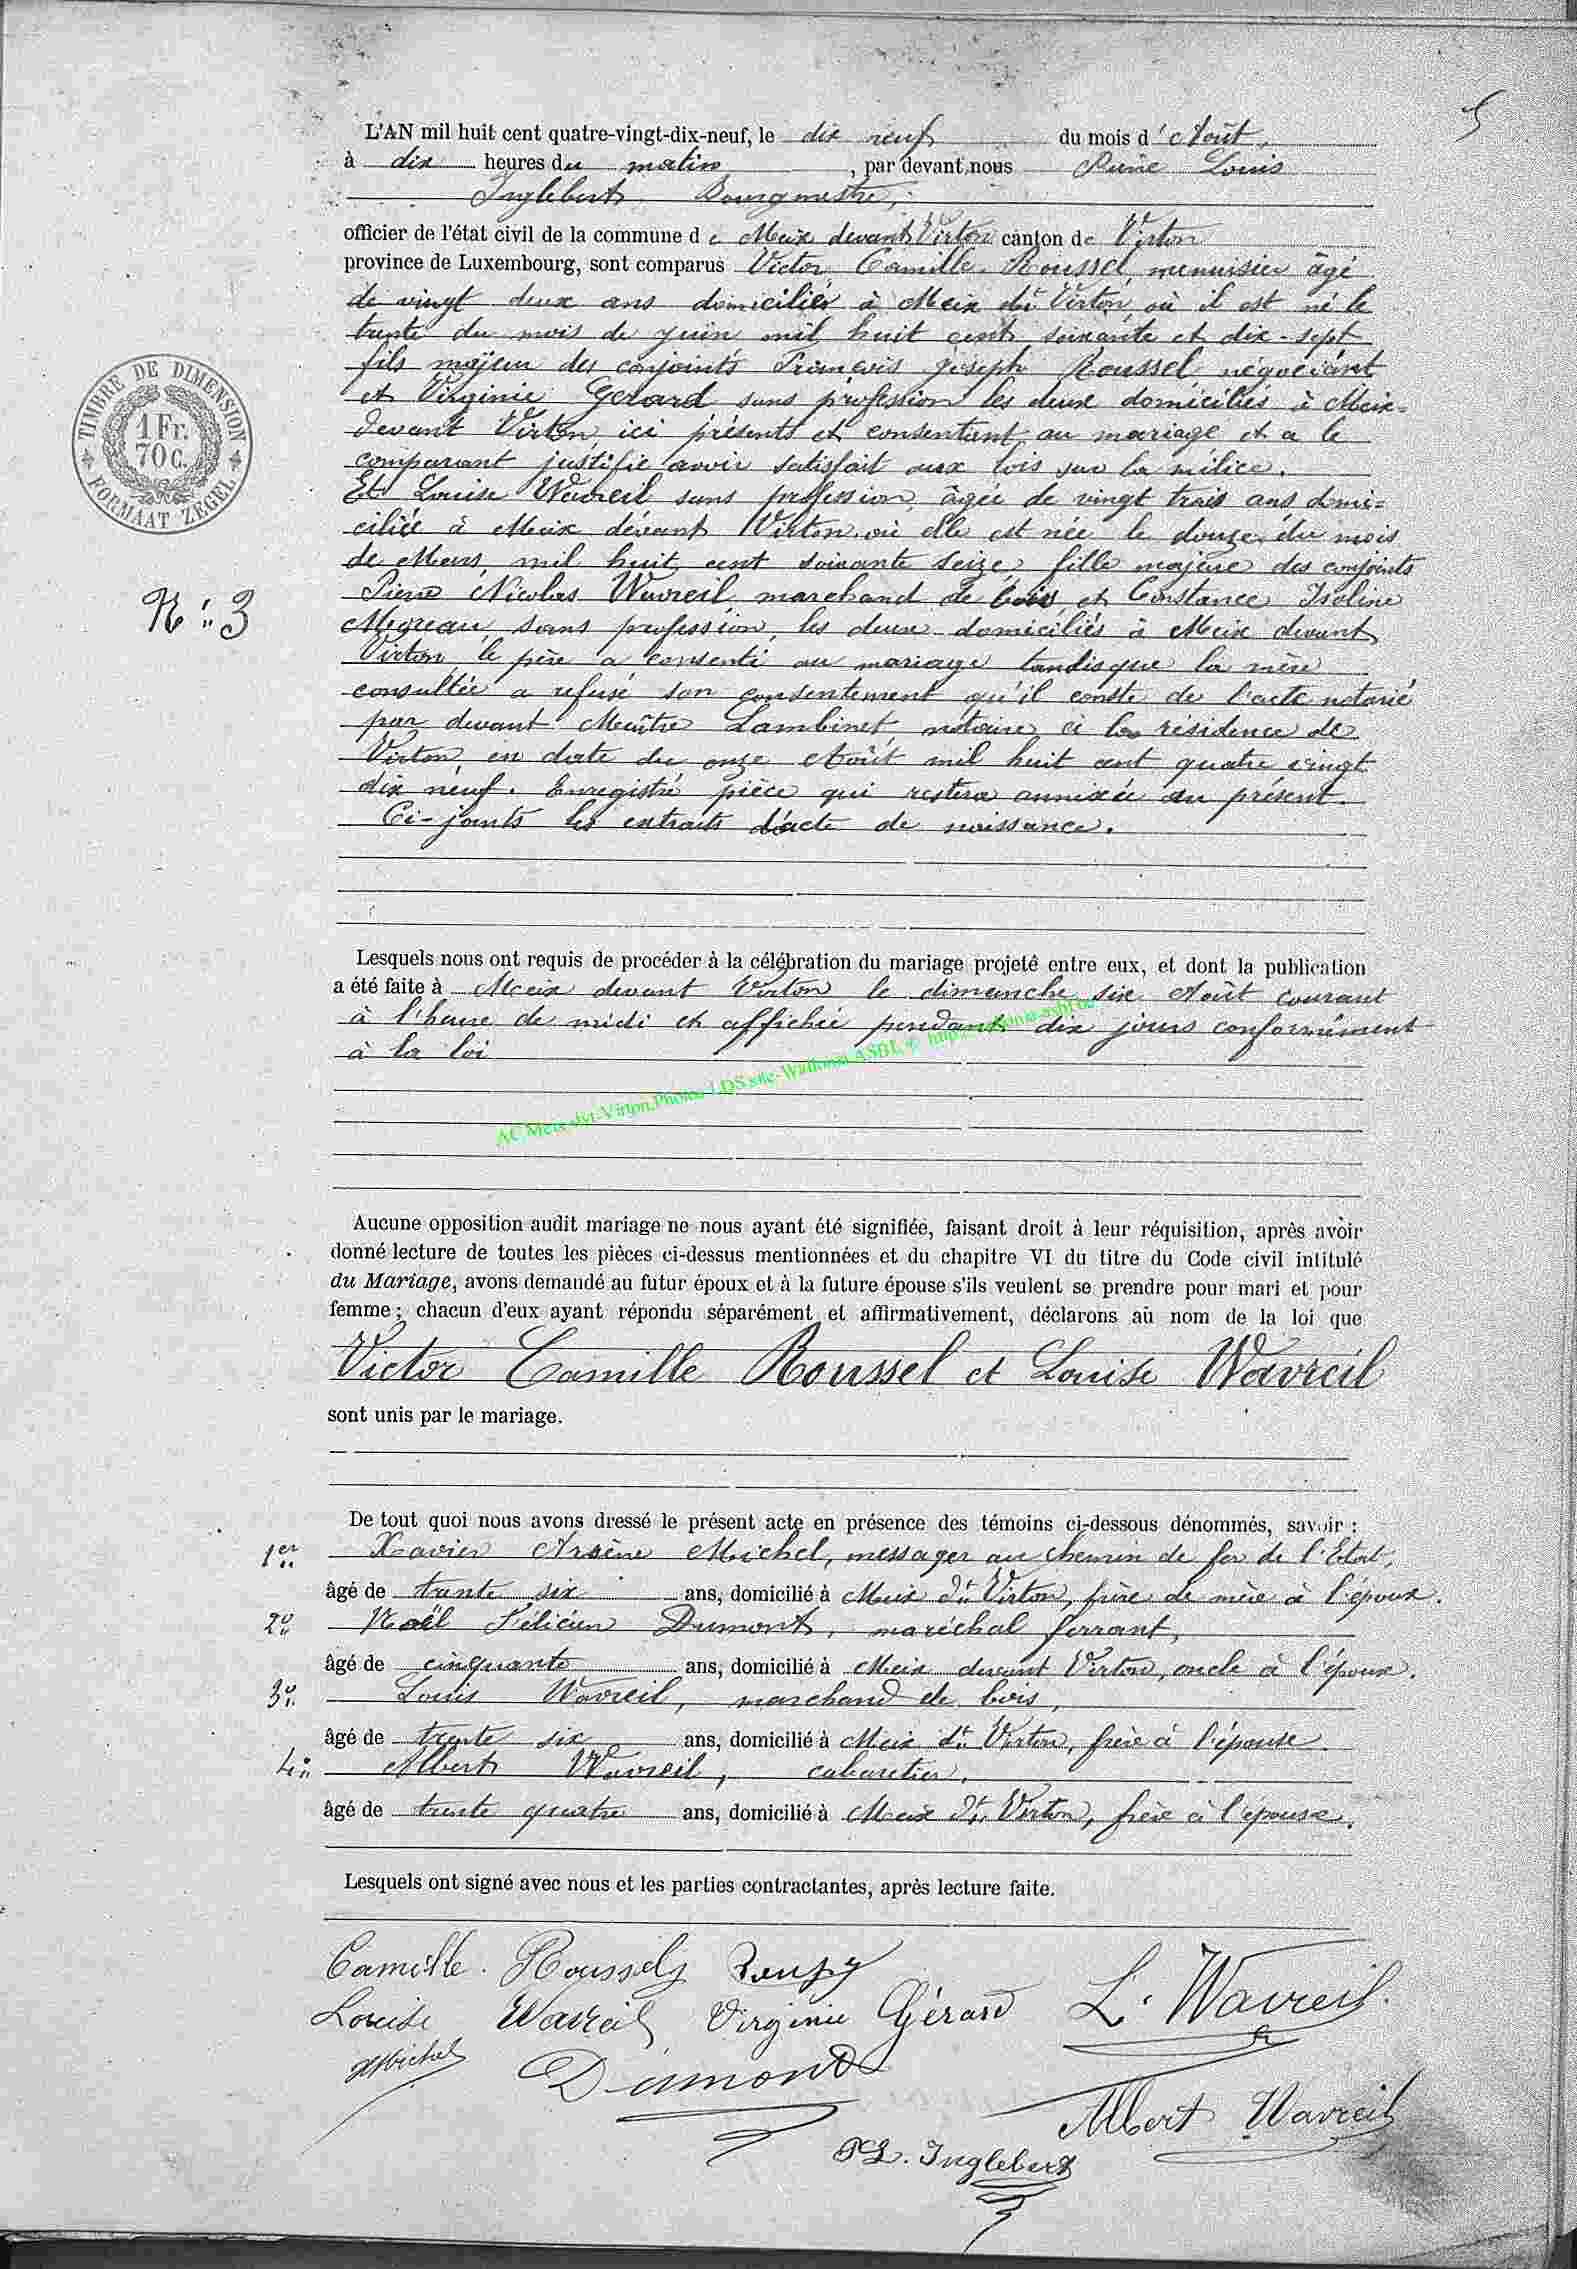 5
L'AN mil huit cent quatre-vingt-dix-neuf, le dix neuf du mois d'Août,
à dix heures du matin, par devant nous Pierre Louis
Inglebert Bourgmestre,
officier de l'état civil de la commune de Meix devant Virton canton de Virton
province de Luxembourg, sont comparus Victor Camille Roussel, menuisier âgé
de vingt deux ans domicilié à Meix dt Virton, où il est né le
trente du mois de juin mil huit cent soixante et dix-sept
fils majeur des conjoints François Joseph Roussel négociant
et Virginie Gerard sans profession les deux domiciliés à Meix-
devant Virton, ici présents et consentant au mariage et a le
comparant justifié avoir satisfait aux lois sur la milice.
Et Louise Wavreil sans profession, âgée de vingt trois ans domi-
ciliée à Meix devant Virton, où elle est née le douze du mois
de Mars, mil huit cent soixante seize, fille majeure des conjoints
Pierre Nicolas Wavreil, marchand de bois, et Constance Isoline
Moreau, sans profession, les deux domiciliés à Meix devant
Virton, le père a consenti au mariage tandis que la mère
consultée a refusé son consentement qu'il conste de l'acte notarié
par devant Maître Lambinet, notaire à la résidence de
Virton, en date du onze Août mil huit cent quatre vingt
dix neuf. Enregistré pièce qui restera annexée au présent.
Ci-joints les extraits d'acte de naissance.
TIMBRE DE DIMENSION
1 Fr.
70 C.
FORMAAT ZEGEL
N° 3
Lesquels nous ont requis de procéder à la célébration du mariage projeté entre eux, et dont la publication
a été faite à Meix devant Virton le dimanche six Août courant
à l'heure de midi et affichée pendant dix jours conformément
à la loi
AC Meix-dvt-Virton, Photos LDS site-Wallonia ASBL © http://
Aucune opposition audit mariage ne nous ayant été signifiée, faisant droit à leur réquisition, après avoir
donné lecture de toutes les pièces ci-dessus mentionnées et du chapitre VI du titre du Code civil intitulé
du Mariage, avons demandé au futur époux et à la future épouse s'ils veulent se prendre pour mari et pour
femme ; chacun d'eux ayant répondu séparément et affirmativement, déclarons au nom de la loi que
Victor Camille Roussel et Louise Wavreil
sont unis par le mariage.
De tout quoi nous avons dressé le présent acte en présence des témoins ci-dessous dénommés, savoir :
1er Xavier Arsène Michel, messager au chemin de fer de l'Etat,
âgé de trente six ans, domicilié à Meix dt Virton, frère de mère à l'époux.
2° Noël Félicien Dumont, maréchal ferrant,
âgé de cinquante ans, domicilié à Meix devant Virton, oncle à l'époux.
3° Louis Wavreil, marchand de bois,
âgé de trente six ans, domicilié à Meix dt Virton, frère à l'épouse.
4° Albert Wavreil, cabaretier,
âgé de trente quatre ans, domicilié à Meix dt Virton, frère à l'épouse.
Lesquels ont signé avec nous et les parties contractantes, après lecture faite.
Camille Roussel
Louise Wavreil Virginie Gérard L. Wavreil
XMichel Dumont
Albert Wavreil
PL. Inglebert